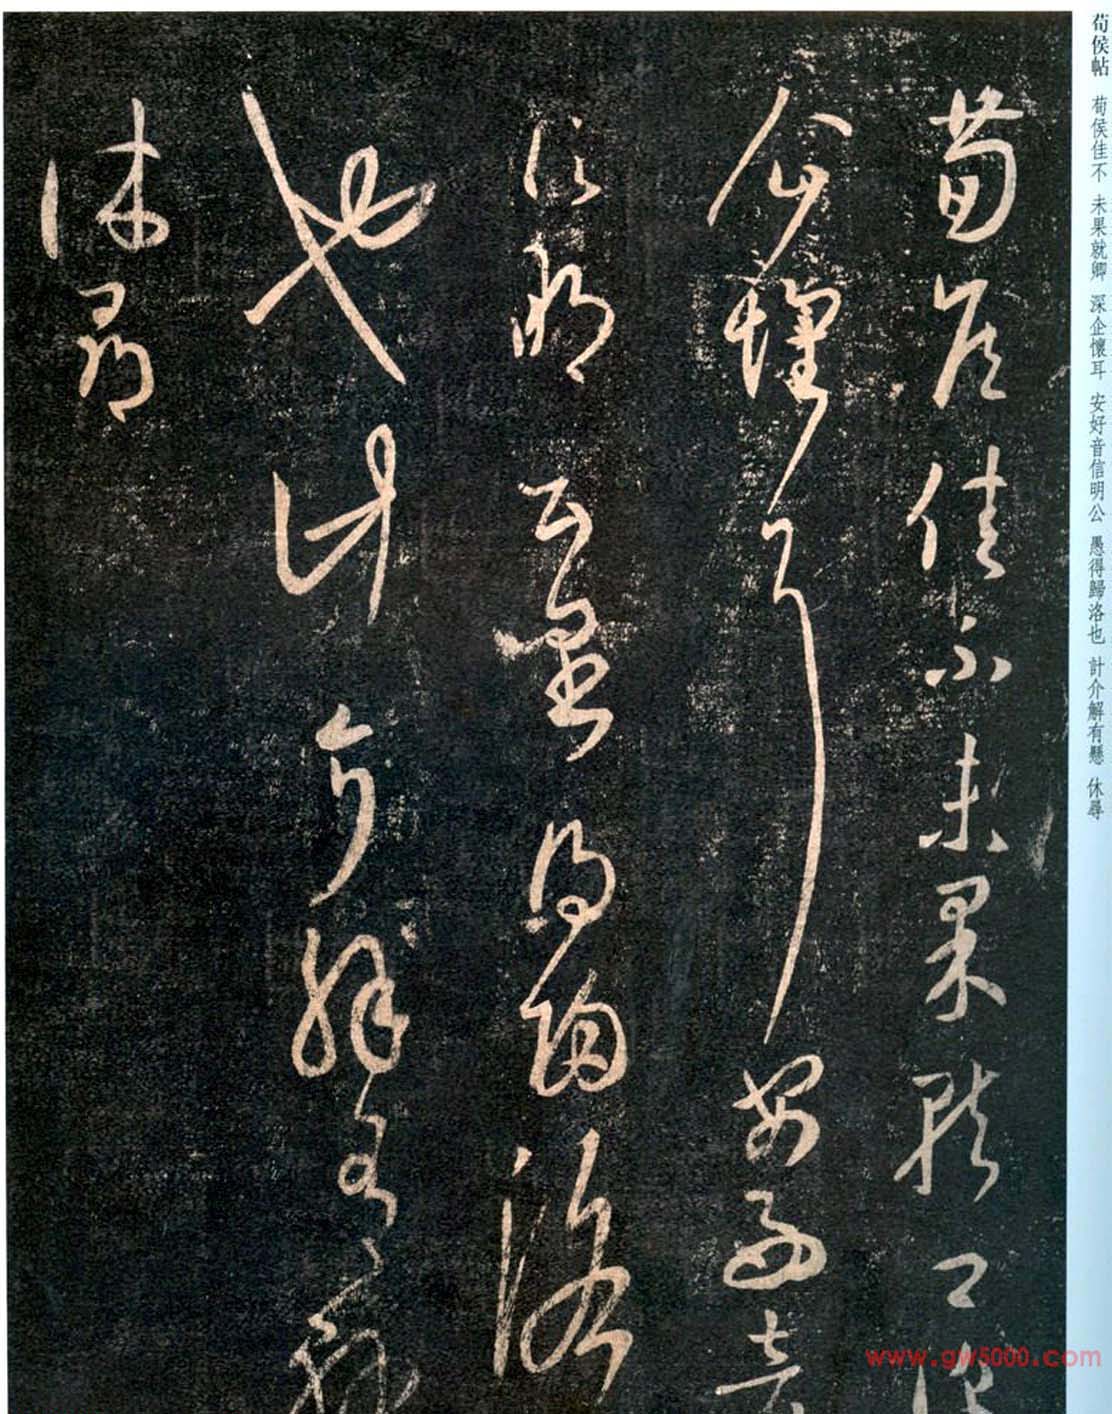 荀侯帖 荀侯佳不 未果就卿 深企懷耳 安好音信明公 愚得歸洛也 計介解有懸 休尋
荀侯佳不未果就卿深
企懷耳安好音
信明公愚得歸洛
也計介解有懸
休尋
www.gw5000.com